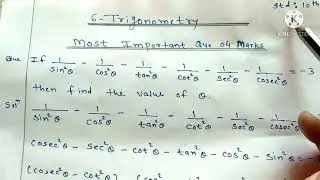 Std: 10th
6-Trigonometry
KINEMASTER
Most Important Que 04 Marks
Que If 1/sin²θ - 1/cos²θ - 1/tan²θ - 1/cot²θ - 1/sec²θ - 1/cosec²θ = -3
then find the value of θ.
Solⁿ 1/sin²θ - 1/cos²θ - 1/tan²θ - 1/cot²θ - 1/sec²θ - 1/cosec²θ
cosec²θ - sec²θ - cot²θ - tan²θ - cos²θ - sin²θ = -3